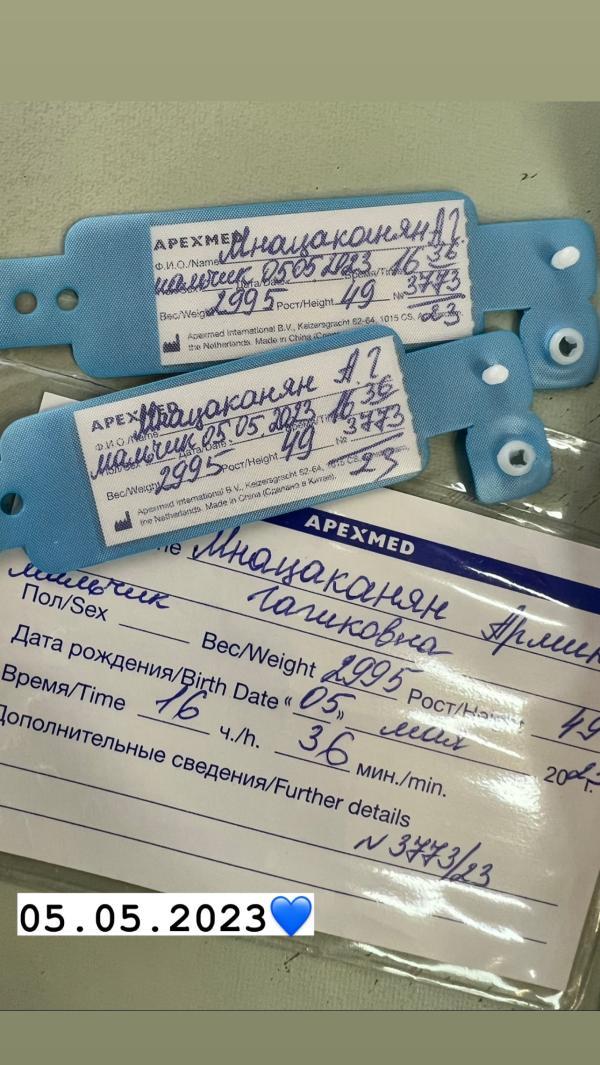 APEXMED
Ф.И.О./Name Мнацаканян А.Г.
мальчик 05 05 2023 16 36
Вес/Weight 2995 Рост/Height 49 № 3773
23
Apexmed International B.V., Keizersgracht 62-64, 1015 CS,
the Netherlands. Made in China
APEXMED
Ф.И.О./Name Мнацаканян А.Г.
мальчик 05.05.2023 16 36
Вес/Weight 2995 Рост/Height 49 № 3773
23
Apexmed International B.V., Keizersgracht 62-64, 1015 CS,
the Netherlands. Made in China (Сделано в Китае).
APEXMED
Мнацаканян
Гагиковна
мальчик
Пол/Sex Вес/Weight 2995 Рост/Height 49
Дата рождения/Birth Date «05» мая 2023 г.
Время/Time 16 ч./h. 36 мин./min.
Дополнительные сведения/Further details
N 3773/23
05.05.2023💙